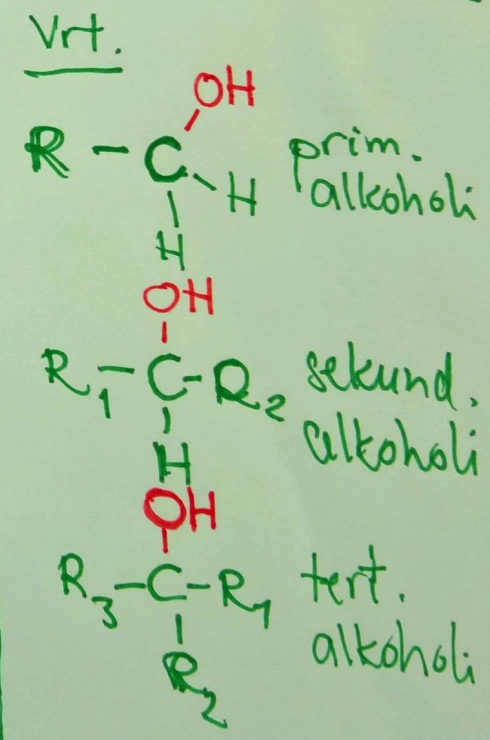 Vrt.
OH
R - C - H prim.
alkoholi
H
OH
R1 - C - R2 sekund.
alkoholi
H
OH
R3 - C - R1 tert.
alkoholi
R2